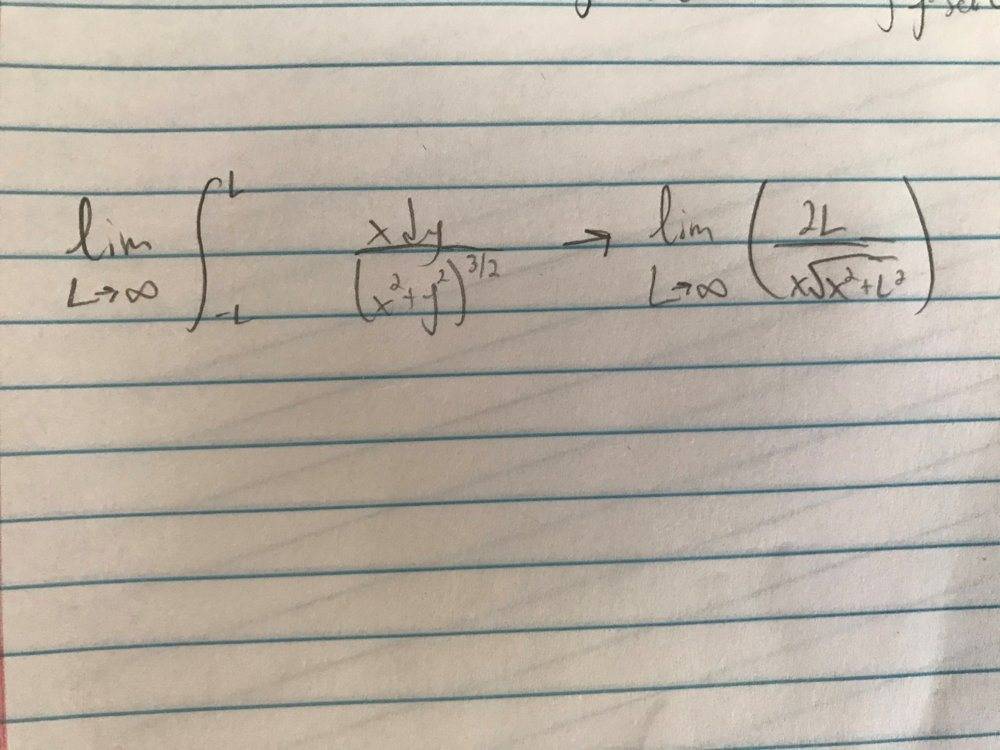 lim L→∞ ∫_{-L}^{L} x dy / (x² + y²)^{3/2} → lim L→∞ ( 2L / x√(x² + L²) )